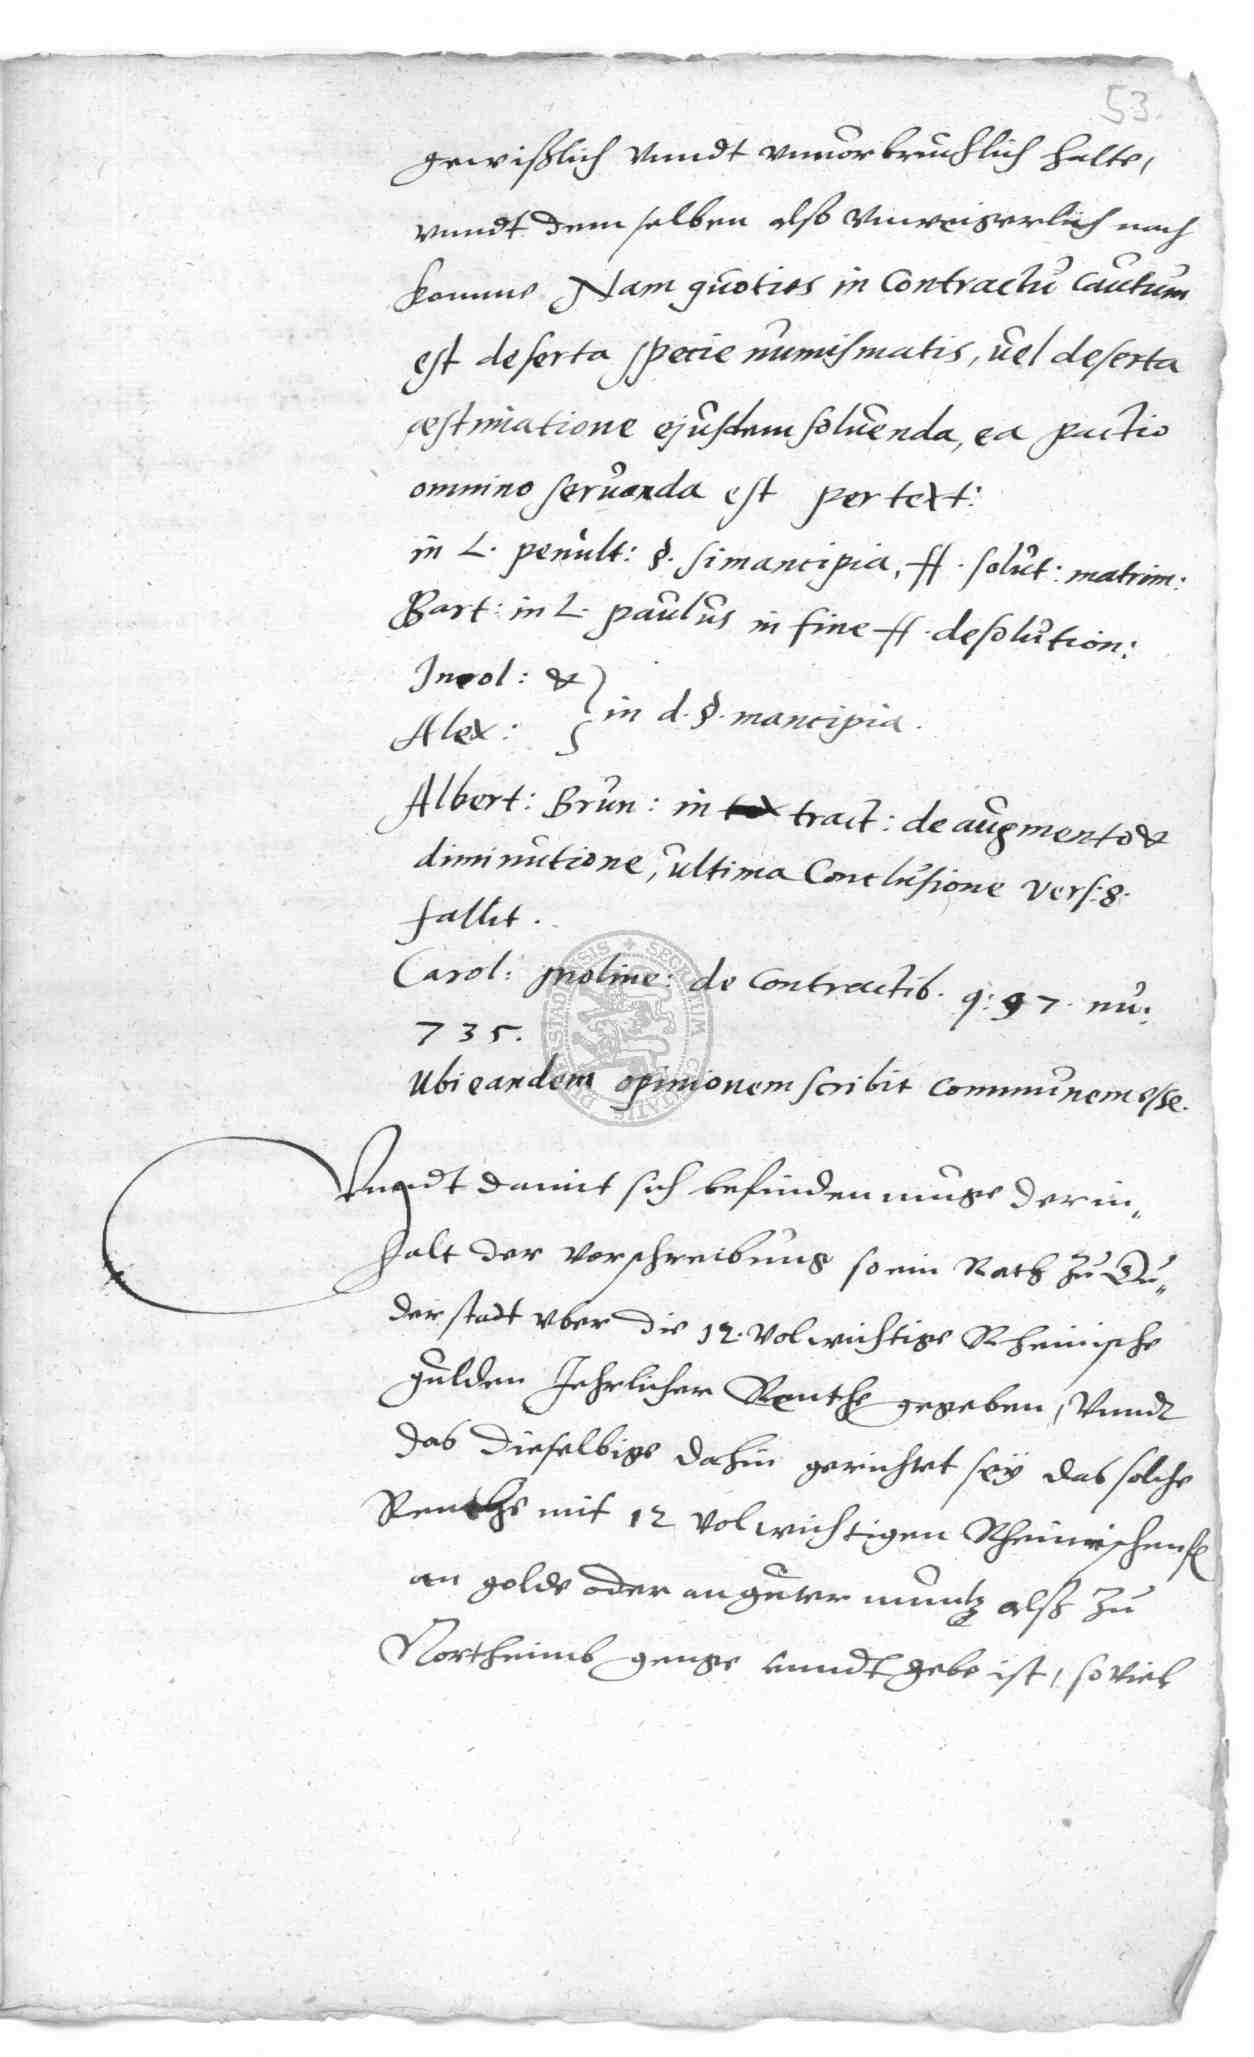 53.
gewißlich vnndt vnuorbruchlich halte,
vnndt demselben also vnweigerlich nach
komme Nam quoties in Contractu Cautum
est de serta specie numismatis, uel de serta
æstimatione ejusdem soluenda, ea pactio
omnino seruanda est per text:
in L. penult: §. si mancipia, ff. solut: matrim:
Bart: in L. paulus in fine ff. de solution:
Imol: &
Alex: } in d. §. mancipia.
Albert: Brun: in tract: de augmento &
diminutione, ultima Conclusione vers: 8.
fallit.
Carol: moline: de Contractib. q: 97. nu:
735.
Ubi eandem opinionem scribit communem esse.
Vnndt damit sich befinden muge der in„
halt der vorschreibung so ein Rath zu Du„
derstadt vber die 12. volwichtige Rheinische
gulden Jehrlicher Renthe gegeben, Vnndt
das dieselbige dahin gerichtet seÿ das solche
Renthe mit 12 volwichtigen Rheinischen fl
an golde oder an guter muntz alß zu
Northeimb genge vnndt gebe ist, so viel